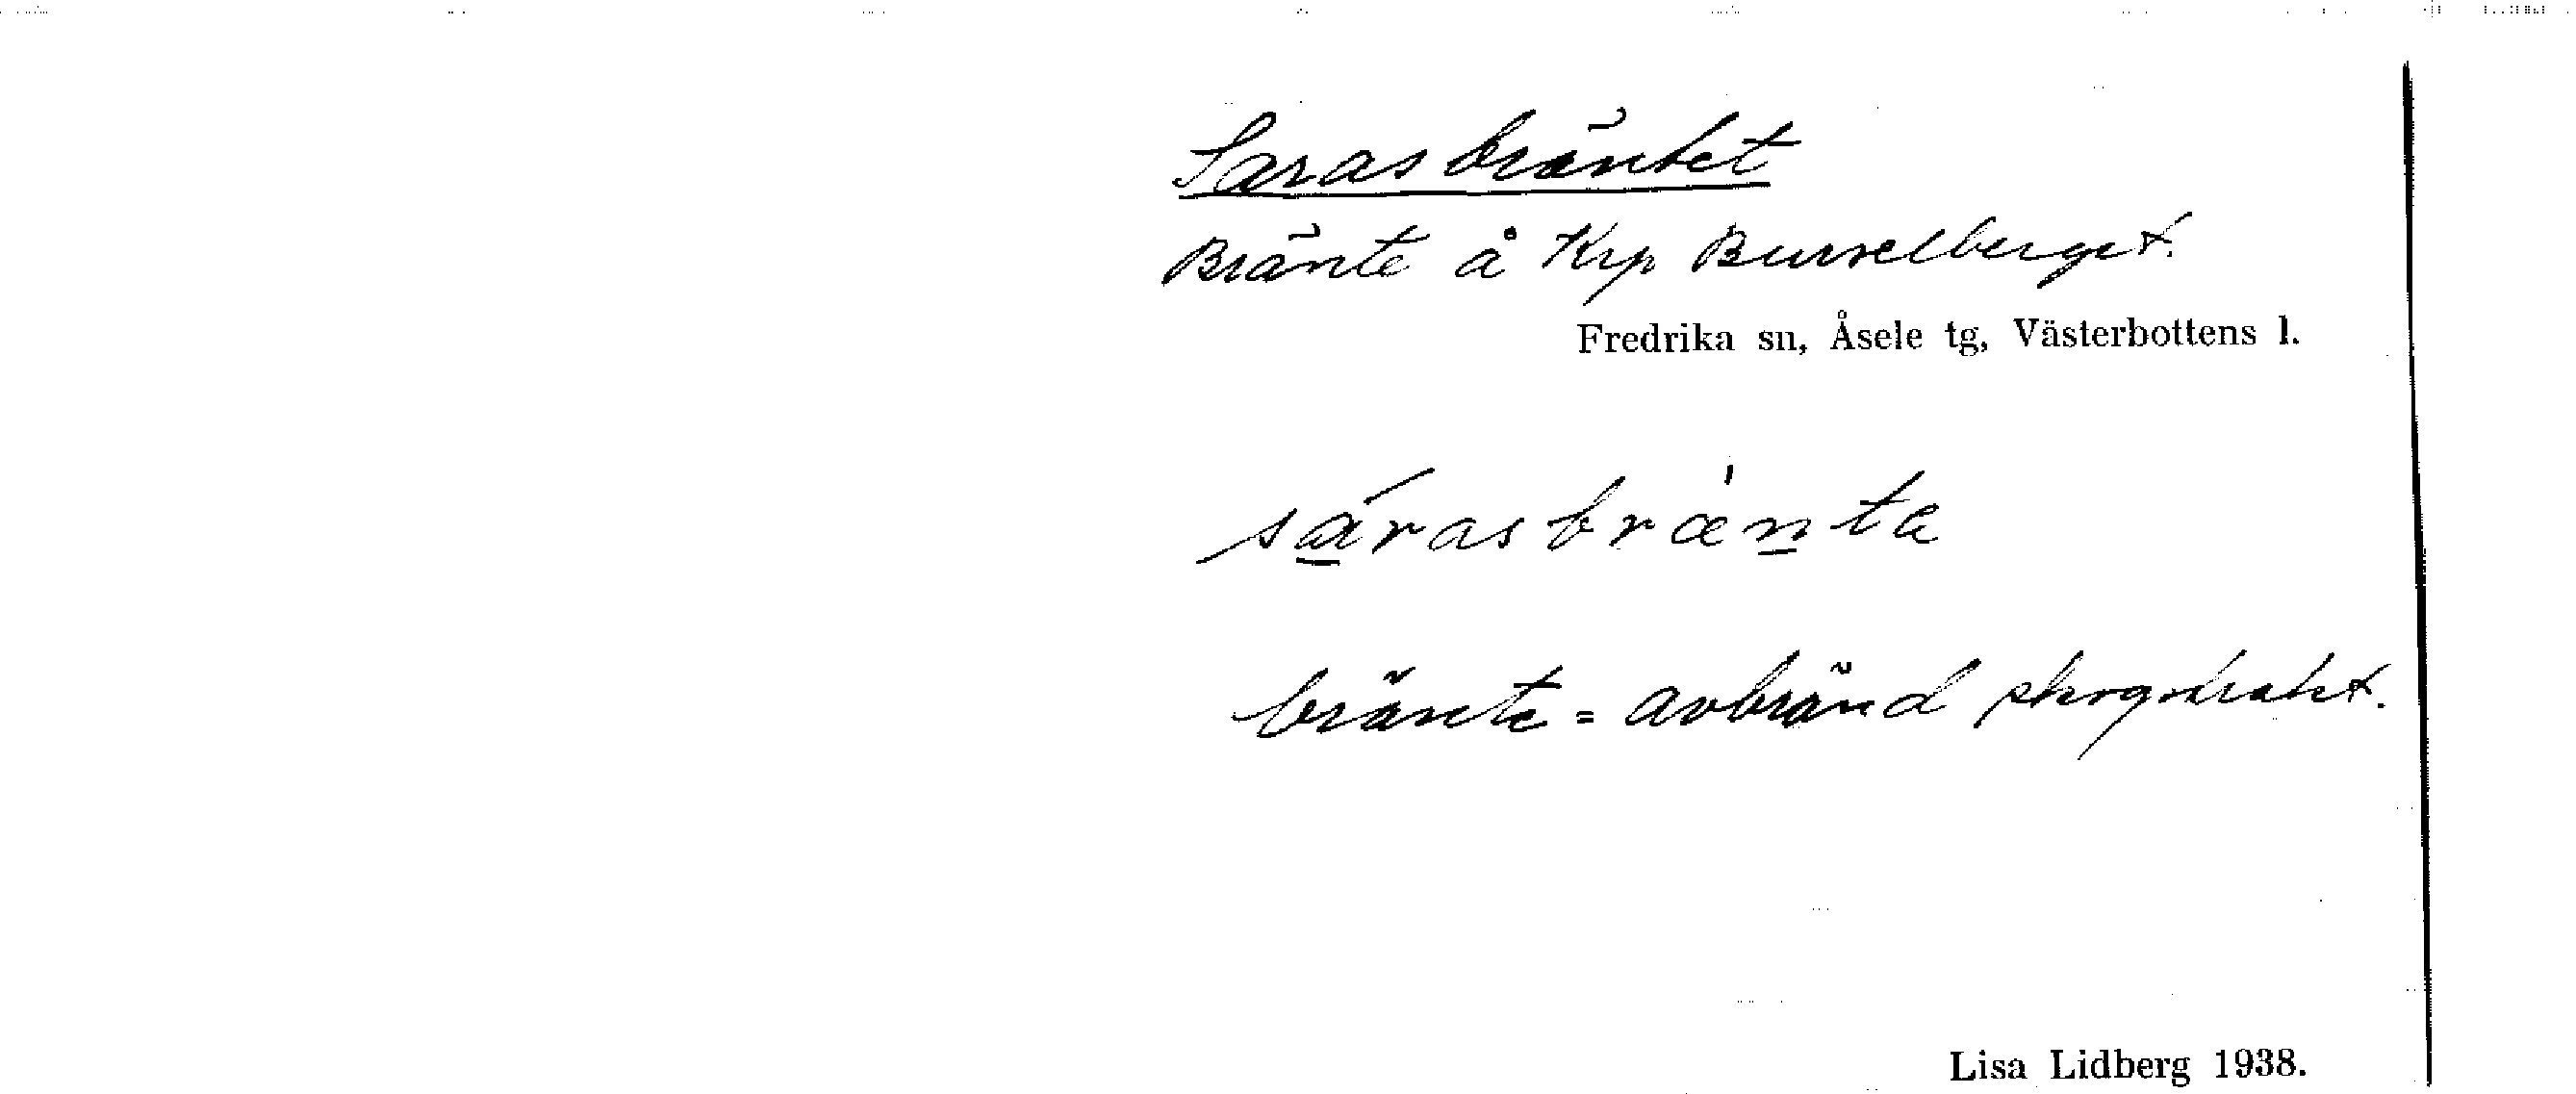 Sarasbräntet
Bränte å Krp Burselberget.
Fredrika sn, Åsele tg, Västerbottens l.
sárasbræ̀nta
bränte = avbränd skogstrakt.
Lisa Lidberg 1938.